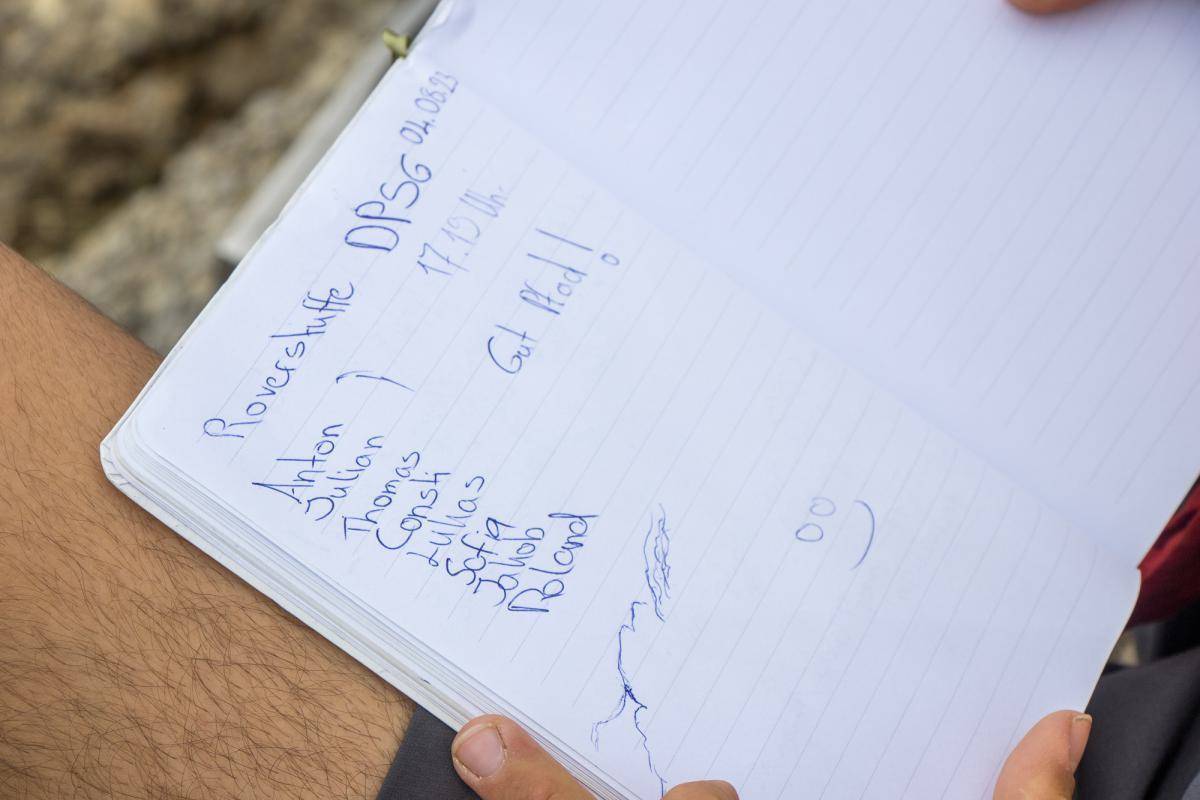 Roverstuffe DPSG 04.08.23
Anton ) 17.19 Uhr
Julian
Thomas Gut Pfad!
Consti
Lukas
Sofia
Jakob
Roland